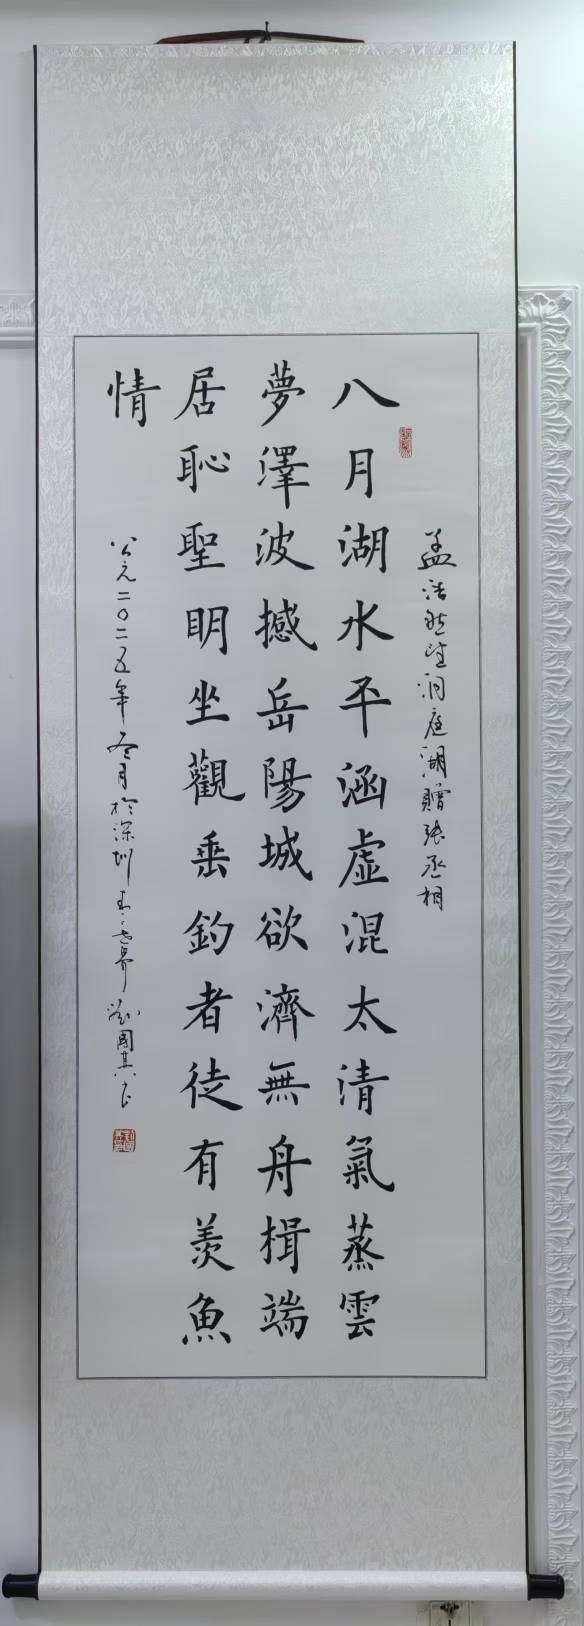 孟浩然望洞庭湖贈張丞相
八月湖水平涵虛混太清氣蒸雲
夢澤波撼岳陽城欲濟無舟楫端
居恥聖明坐觀垂釣者徒有羨魚
情
公元二〇二五年冬月於深圳
劉國其書